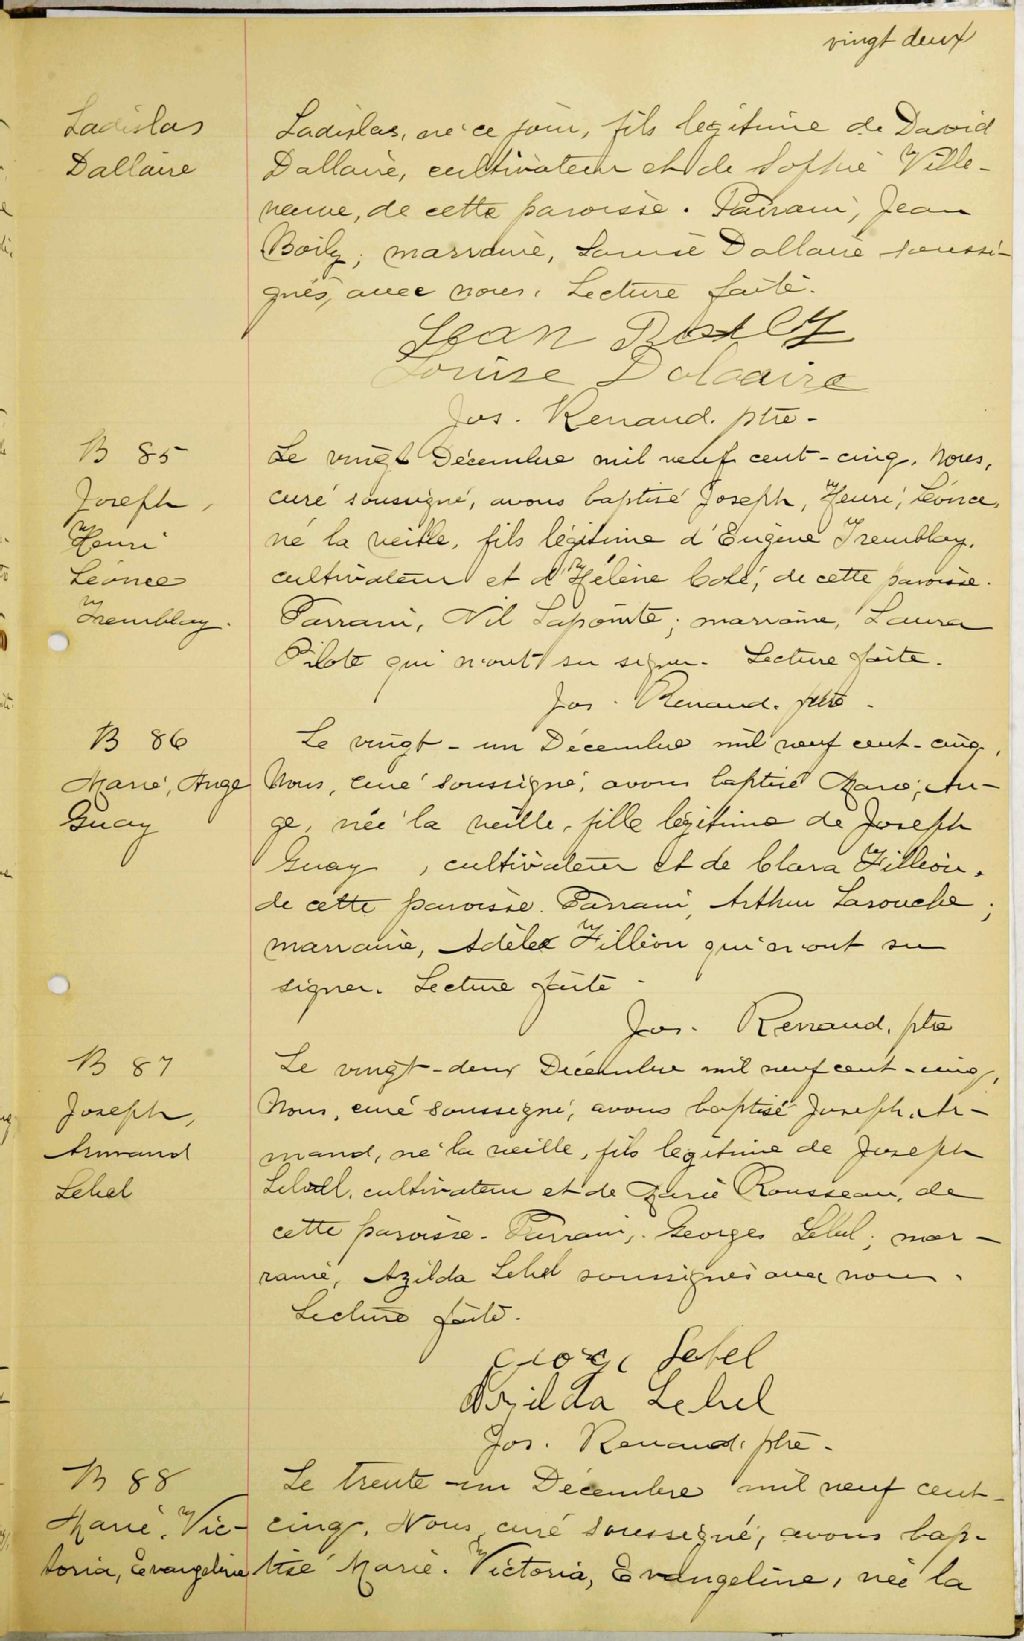 vingt deux
Ladislas
Dallaire
Ladislas, né ce jour, fils légitime de David
Dallaire, cultivateur et de Sophie Ville-
neuve, de cette paroisse. Parrain, Jean
Boily; marraine, Louise Dallaire soussi-
gnés, avec nous. Lecture faite.
Jean Boily
Louise Dalaaire
Jos. Renaud. ptre-
B 85
Joseph,
Henri
Léonce
Tremblay.
Le vingt Décembre mil neuf cent-cinq, Nous,
curé soussigné, avons baptisé Joseph, Henri, Léonce,
né la veille, fils légitime d'Eugène Tremblay,
cultivateur et d'Hélène Coté, de cette paroisse.
Parrain, Nil Lapointe; marraine, Laura
Pilote qui n'ont su signer. Lecture faite.
Jos. Renaud. ptre.
B 86
Marie, Ange
Guay
Le vingt-un Décembre mil neuf cent-cinq,
Nous, curé soussigné, avons baptisé Marie, An-
ge, née la veille, fille légitime de Joseph
Guay, cultivateur et de Clara Fillion,
de cette paroisse. Parrain, Arthur Larouche;
marraine, Adèle Fillion qui n'ont su
signer. Lecture faite.
Jos. Renaud, ptre
B 87
Joseph,
Armand
Lebel
Le vingt-deux Décembre mil neuf cent-cinq,
Nous, curé soussigné, avons baptisé Joseph, Ar-
mand, né la veille, fils légitime de Joseph
Lebel, cultivateur et de Marie Rousseau, de
cette paroisse. Parrain, Georges Lebel; mar-
raine, Azilda Lebel soussignés avec nous.
Lecture faite.
George Lebel
Azilda Lebel
Jos. Renaud, ptre.
B 88
Marie, Vic-
toria, Evangeline
Le trente-un Décembre mil neuf cent-
cinq, Nous, curé soussigné, avons bap-
tisé Marie. Victoria, Evangeline, née la